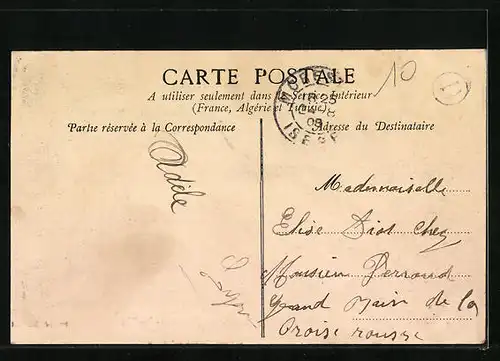 CARTE POSTALE
10
A utiliser seulement dans le Service Intérieur
(France, Algérie et Tunisie)
25
8
09
ISERE
Partie réservée à la Correspondance
Adresse du Destinataire
Adèle
Lyon
Mademoiselle
Elise Diot Chez
Monsieur Perroud
Grand de la
Croise rousse